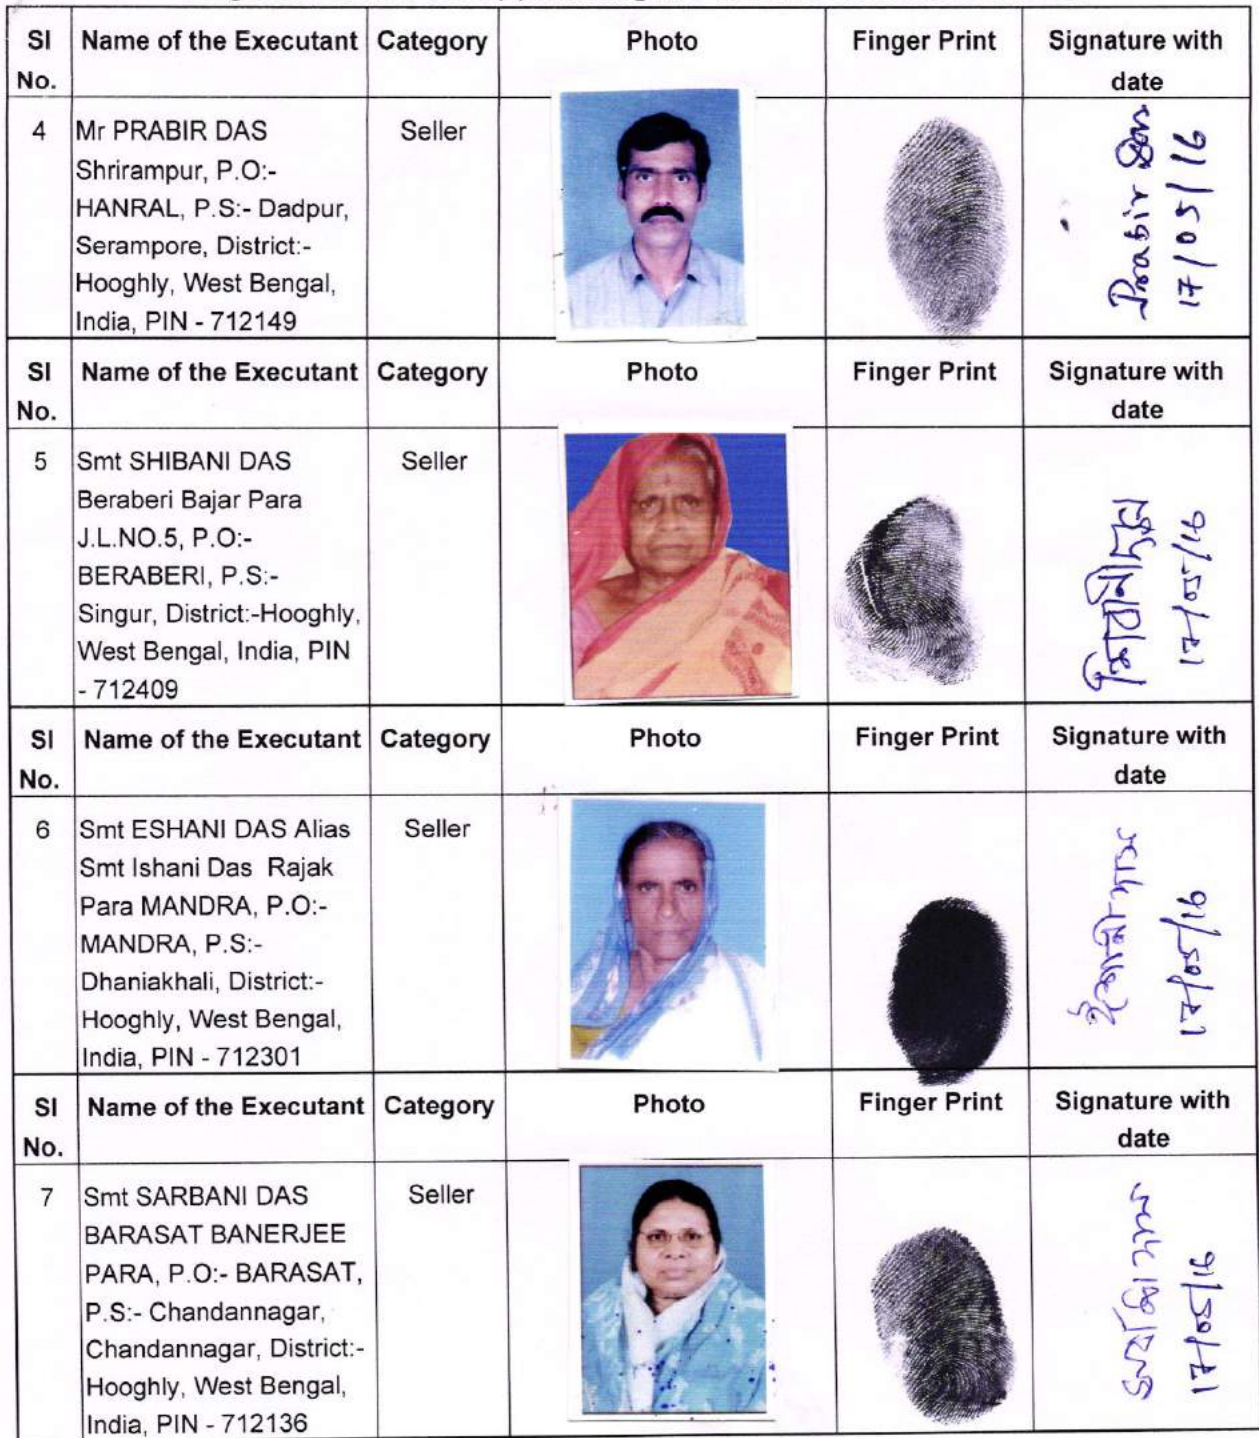 Sl No. Name of the Executant Category Photo Finger Print Signature with date
4 Mr PRABIR DAS Seller
Shrirampur, P.O:-
HANRAL, P.S:- Dadpur,
Serampore, District:-
Hooghly, West Bengal,
India, PIN - 712149
Prabir Das
17/05/16
Sl No. Name of the Executant Category Photo Finger Print Signature with date
5 Smt SHIBANI DAS Seller
Beraberi Bajar Para
J.L.NO.5, P.O:-
BERABERI, P.S:-
Singur, District:-Hooghly,
West Bengal, India, PIN
- 712409
শিবানী দাস
17/05/16
Sl No. Name of the Executant Category Photo Finger Print Signature with date
6 Smt ESHANI DAS Alias Seller
Smt Ishani Das Rajak
Para MANDRA, P.O:-
MANDRA, P.S:-
Dhaniakhali, District:-
Hooghly, West Bengal,
India, PIN - 712301
ঈশানী দাস
17/05/16
Sl No. Name of the Executant Category Photo Finger Print Signature with date
7 Smt SARBANI DAS Seller
BARASAT BANERJEE
PARA, P.O:- BARASAT,
P.S:- Chandannagar,
Chandannagar, District:-
Hooghly, West Bengal,
India, PIN - 712136
সর্বানী দাস
17/05/16